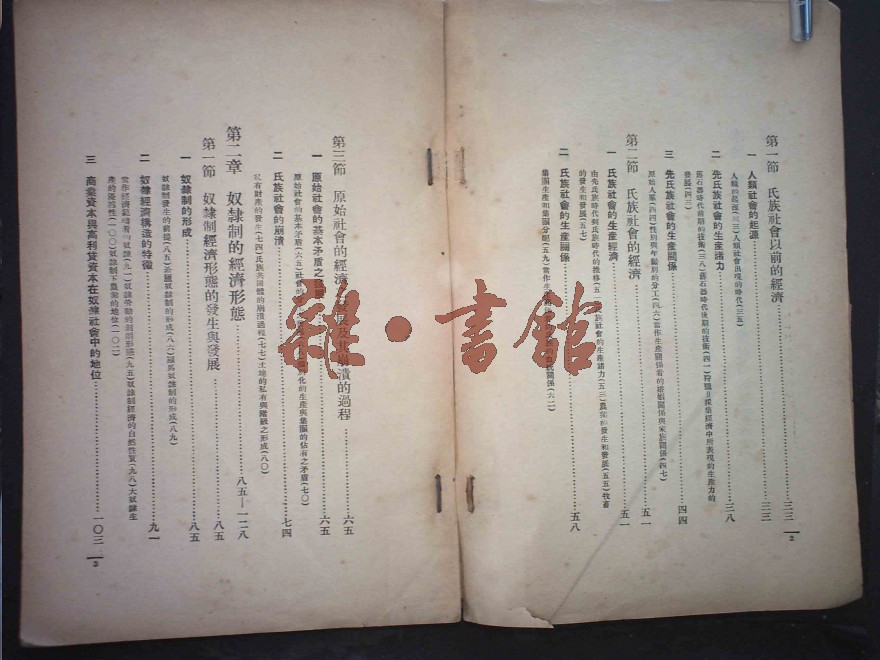 第一節　氏族社會以前的經濟……三三
一　人類社會的起源……三三
人類的起源(三三)人類社會出現的時代(三五)
二　先氏族社會的生產諸力……三八
舊石器時代前期的技術(三八)舊石器時代後期的技術(四一)狩獵日採集經濟中所表現的生產力的
發展(四三)
三　先氏族社會的生產關係……四四
原始人羣(四四)性別與年齡別的分工(四六)當作生產關係看的婚姻關係與家族關係(四七)
第二節　氏族社會的經濟……五一
一　氏族社會的生產經濟……五一
由先氏族時代到氏族時代的推移(五一)氏族社會的生產諸力(五三)農業的發生和發展(五五)牧畜
的發生和發展(五七)
二　氏族社會的生產關係……五八
集團生產和集團分配(五九)當作生 關係(六二)
2
第三節　原始社會的經濟 發展及其崩潰的過程……六五
一　原始社會的基本矛盾之 ……六五
原始社會的基本矛盾(六五)社會的 化的生產與集團的佔有之矛盾(七〇)
二　氏族社會的崩潰……七四
私有財產的發生(七四)氏族共同體的崩潰過程(七七)土地的私有與階級之形成(八〇)
第二章　奴隸制的經濟形態……八五—一二八
第一節　奴隸制經濟形態的發生與發展……八五
一　奴隸制的形成……八五
奴隸制發生的前提(八五)希臘奴隸制的形成(八六)羅馬奴隸制的形成(八九)
二　奴隸經濟構造的特徵……九一
當作經濟範疇看的奴隸(九一)奴隸勞動的剝削形態(九五)奴隸制經濟的自然性質(九八)大奴隸生
產的優越性(一〇〇)奴隸制下農業的地位(一〇二)
三　商業資本與高利貸資本在奴隸社會中的地位……一〇三
3
雜·書館